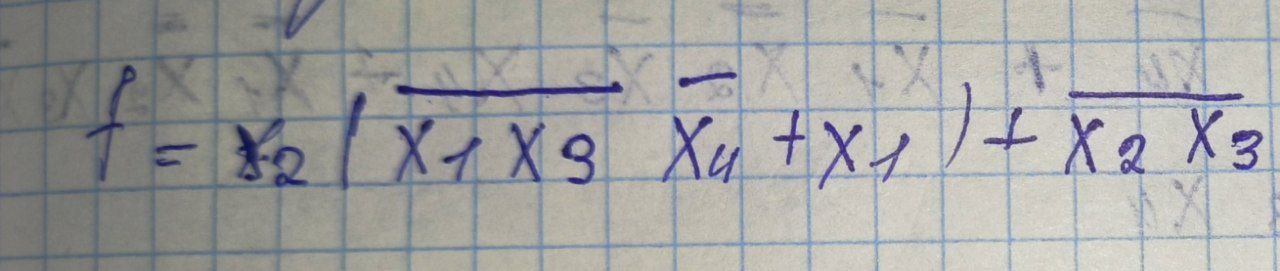 f = x2 ( \overline{x1 x3} \overline{x4} + x1 ) + \overline{x2 x3}